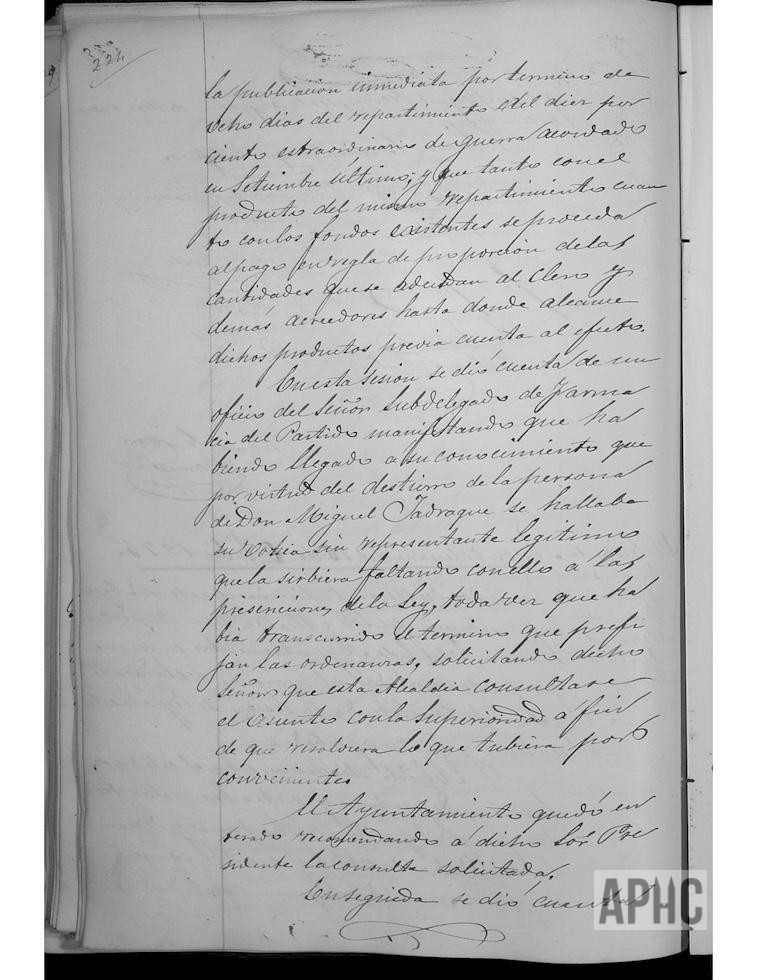 224
la publicacion inmediata por termino de
ocho dias del repartimiento del diez por
ciento estraordinario de guerra acordado
en Setiembre último; y que tanto con el
producto del mismo repartimiento cuan
to con los fondos existentes se proceda
al pago en regla de proporcion de las
cantidades que se adeudan al Clero y
demás acreedores hasta donde alcance
dichos productos previa cuenta al efecto.
En esta sesion se dió cuenta de un
oficio del Señor Subdelegado de Farma
cia del Partido manifestando que ha
biendo llegado a su conocimiento que
por virtud del destierro de la persona
de Don Miguel Jadraque se hallaba
su botica sin representante legitimo
que la sirbiera faltando con ello á las
prescriciones de la Ley, toda vez que ha
bia transcurrido el termino que prefi
jan las ordenanzas, solicitando dicho
Señor que esta Alcaldia consultase
el asunto con la Superioridad á fin
de que resolviera lo que tubiera por
conveniente
El Ayuntamiento quedó en
terado recomendando á dicho Sor. Pre
sidente la consulta solicitada.
Enseguida se dió cuenta
APHC